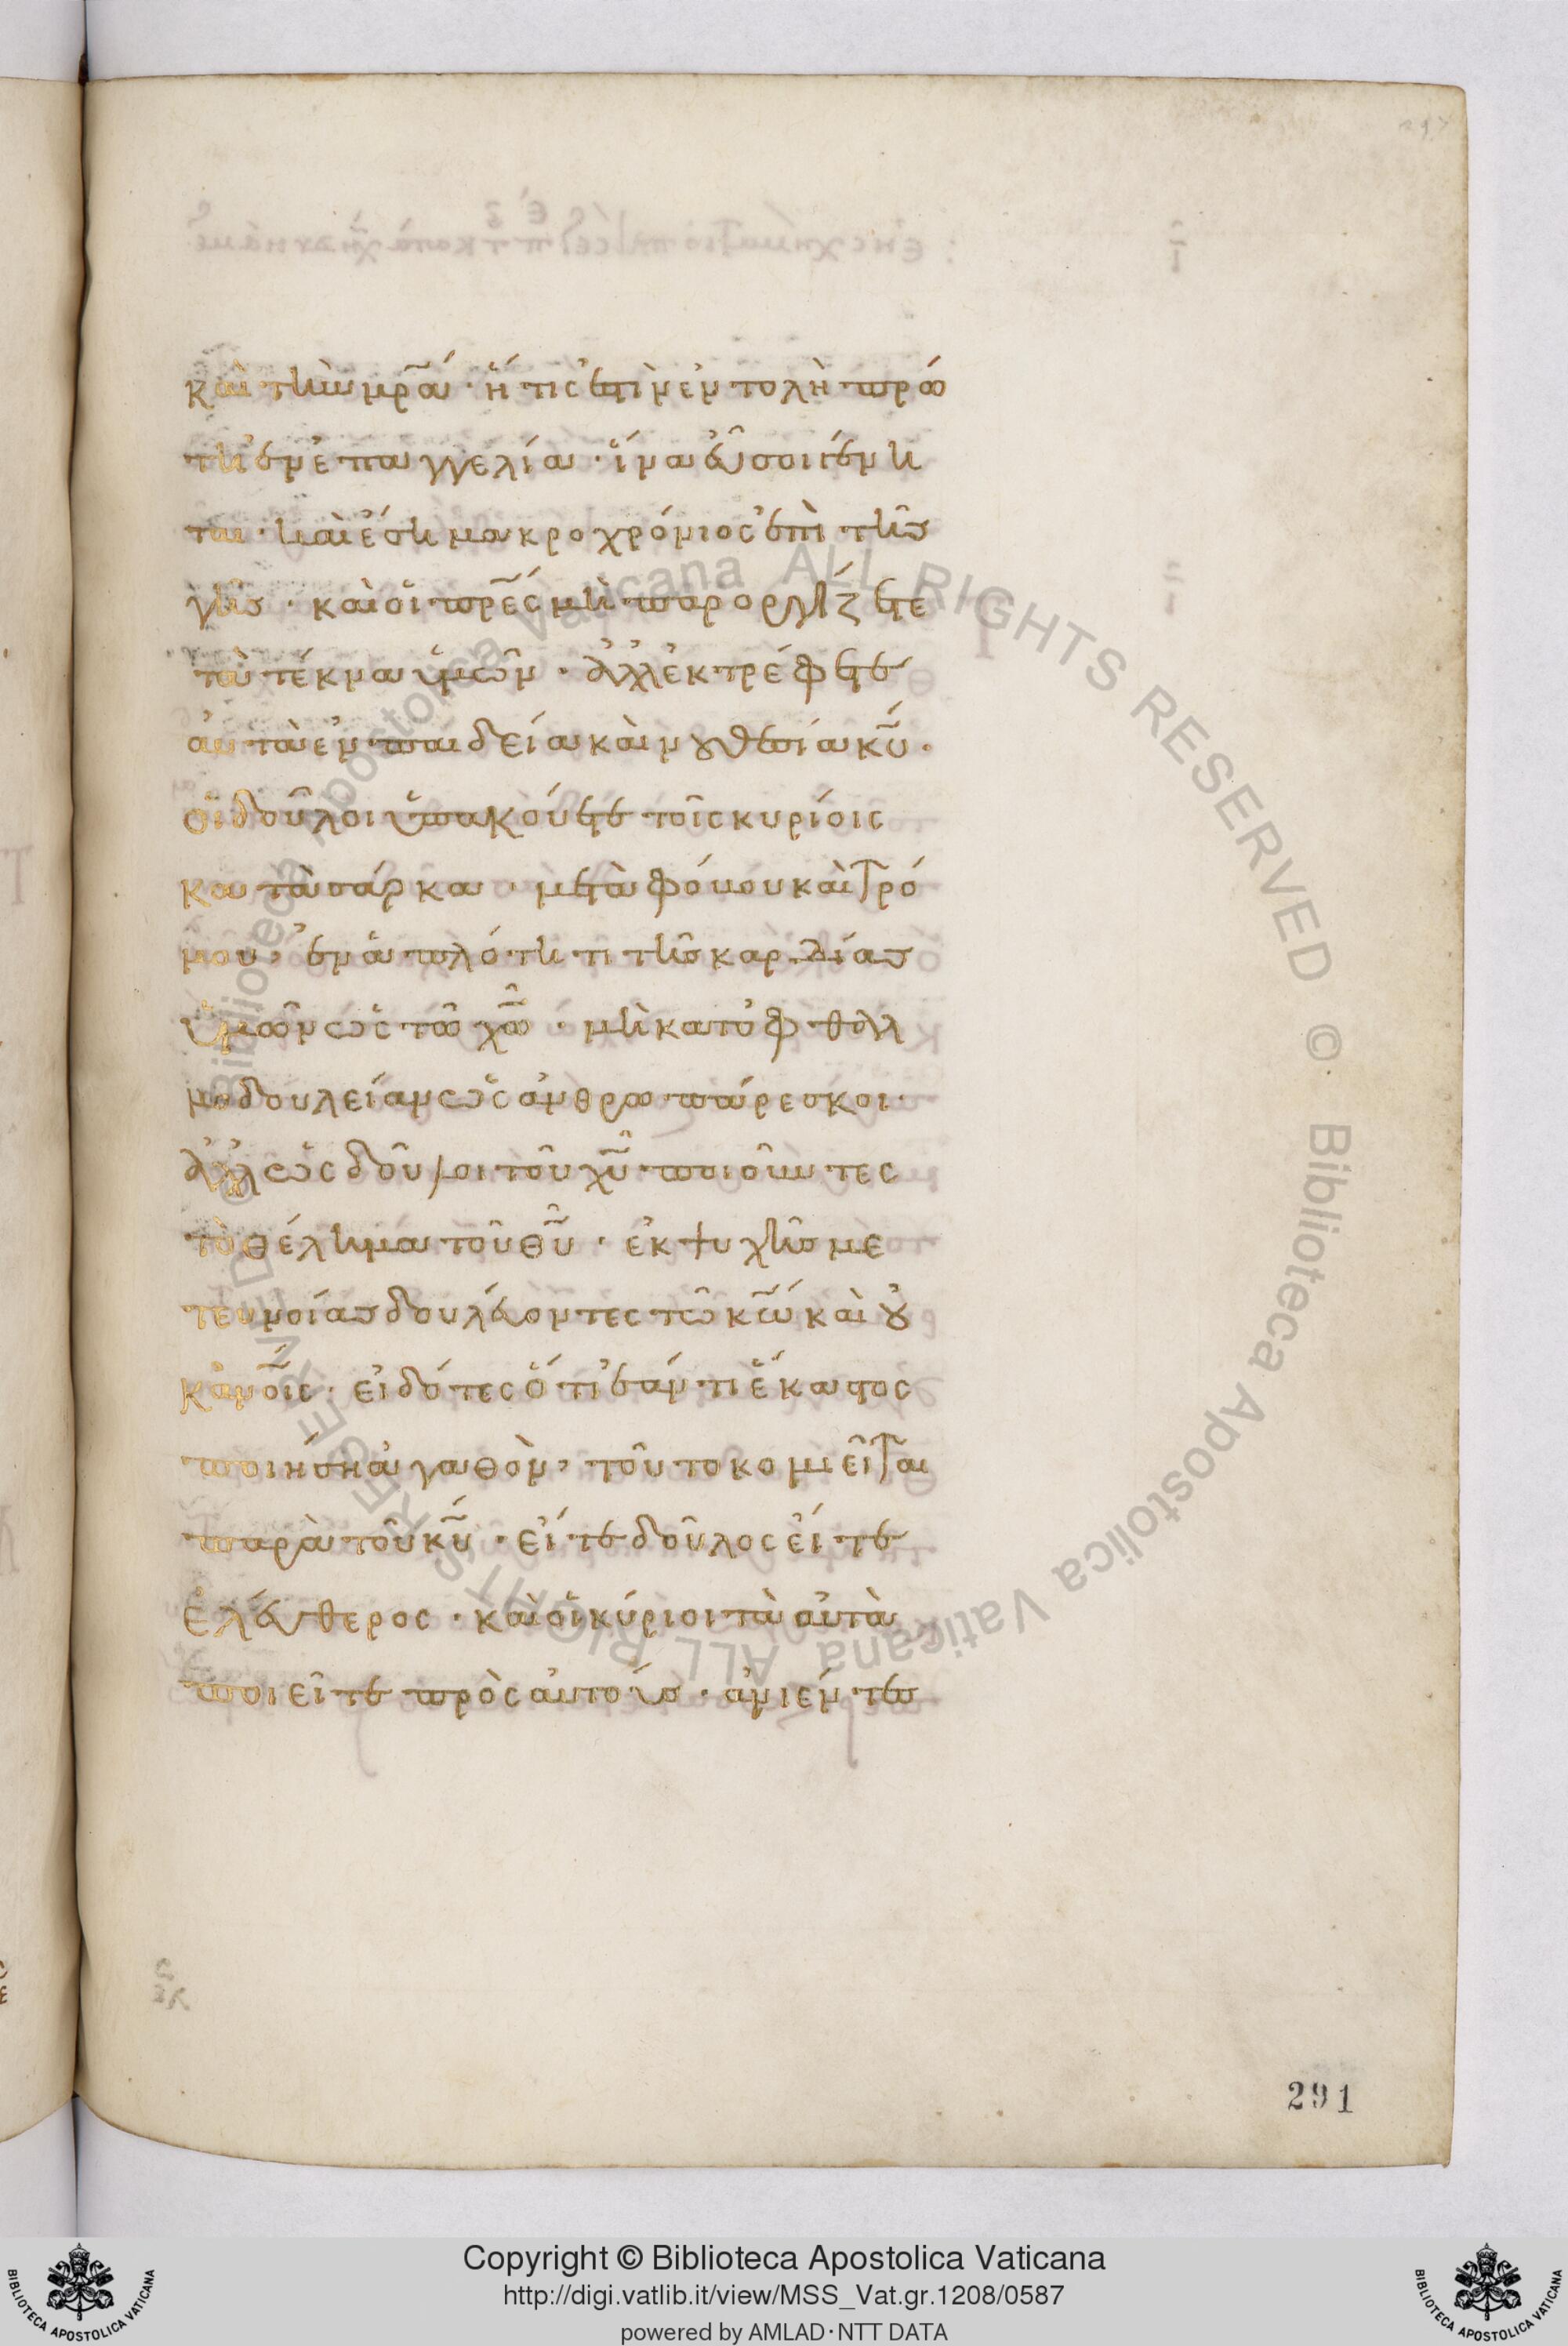 καὶ τὴν μρ̃α· ἥτις ἐστὶν ἐντολὴ πρώ
τη ἐν ἐπαγγελία· ἵνα εὖ σοι γένη
ται· καὶ ἔση μακροχρόνιος ἐπὶ τῆς
γῆς· καὶ οἱ πρ̃ες μὴ παροργίζετε
τὰ τέκνα ὑμῶν· ἀλλ' ἐκτρέφετε
αὐτὰ ἐν παιδεία καὶ νουθεσία κυ̃·
οἱ δοῦλοι ὑπακούετε τοῖς κυρίοις
κατὰ σάρκα· μετὰ φόβου καὶ τρό
μου, ἐν ἁπλότητι τῆς καρδίας
ὑμῶν ὡς τῶ χω̃· μὴ κατ' ὀφθαλ
μοδουλείαν ὡς ἀνθρωπάρεσκοι·
ἀλλ' ὡς δοῦλοι τοῦ χυ̃ ποιοῦντες
τὸ θέλημα τοῦ θυ̃· ἐκ ψυχῆς με
τ' ευνοίας δουλεύοντες τῶ κω̃ καὶ οὐ
κ ἀνοις̃· εἰδότες ὅτι ἐάν τι ἕκαστος
ποιήση ἀγαθὸν, τοῦτο κομιεῖται
παρὰ τοῦ κυ̃· εἴτε δοῦλος εἴτε
ἐλεύθερος· καὶ οἱ κύριοι τὰ αὐτὰ
ποιεῖτε πρὸς αὐτούς· ἀνιέντες
291
Copyright © Biblioteca Apostolica Vaticana
http://digi.vatlib.it/view/MSS_Vat.gr.1208/0587
powered by AMLAD·NTT DATA
BIBLIOTECA APOSTOLICA VATICANA
BIBLIOTECA APOSTOLICA VATICANA
© Biblioteca Apostolica Vaticana ALL RIGHTS RESERVED © Biblioteca Apostolica Vaticana ALL RIGHTS RESERVED